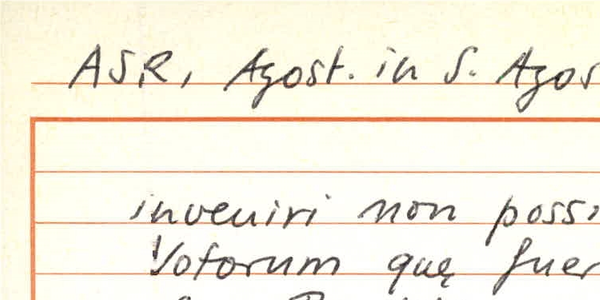 ASR, Agost. in S. Agos
inveniri non possi
Votorum quę fuer